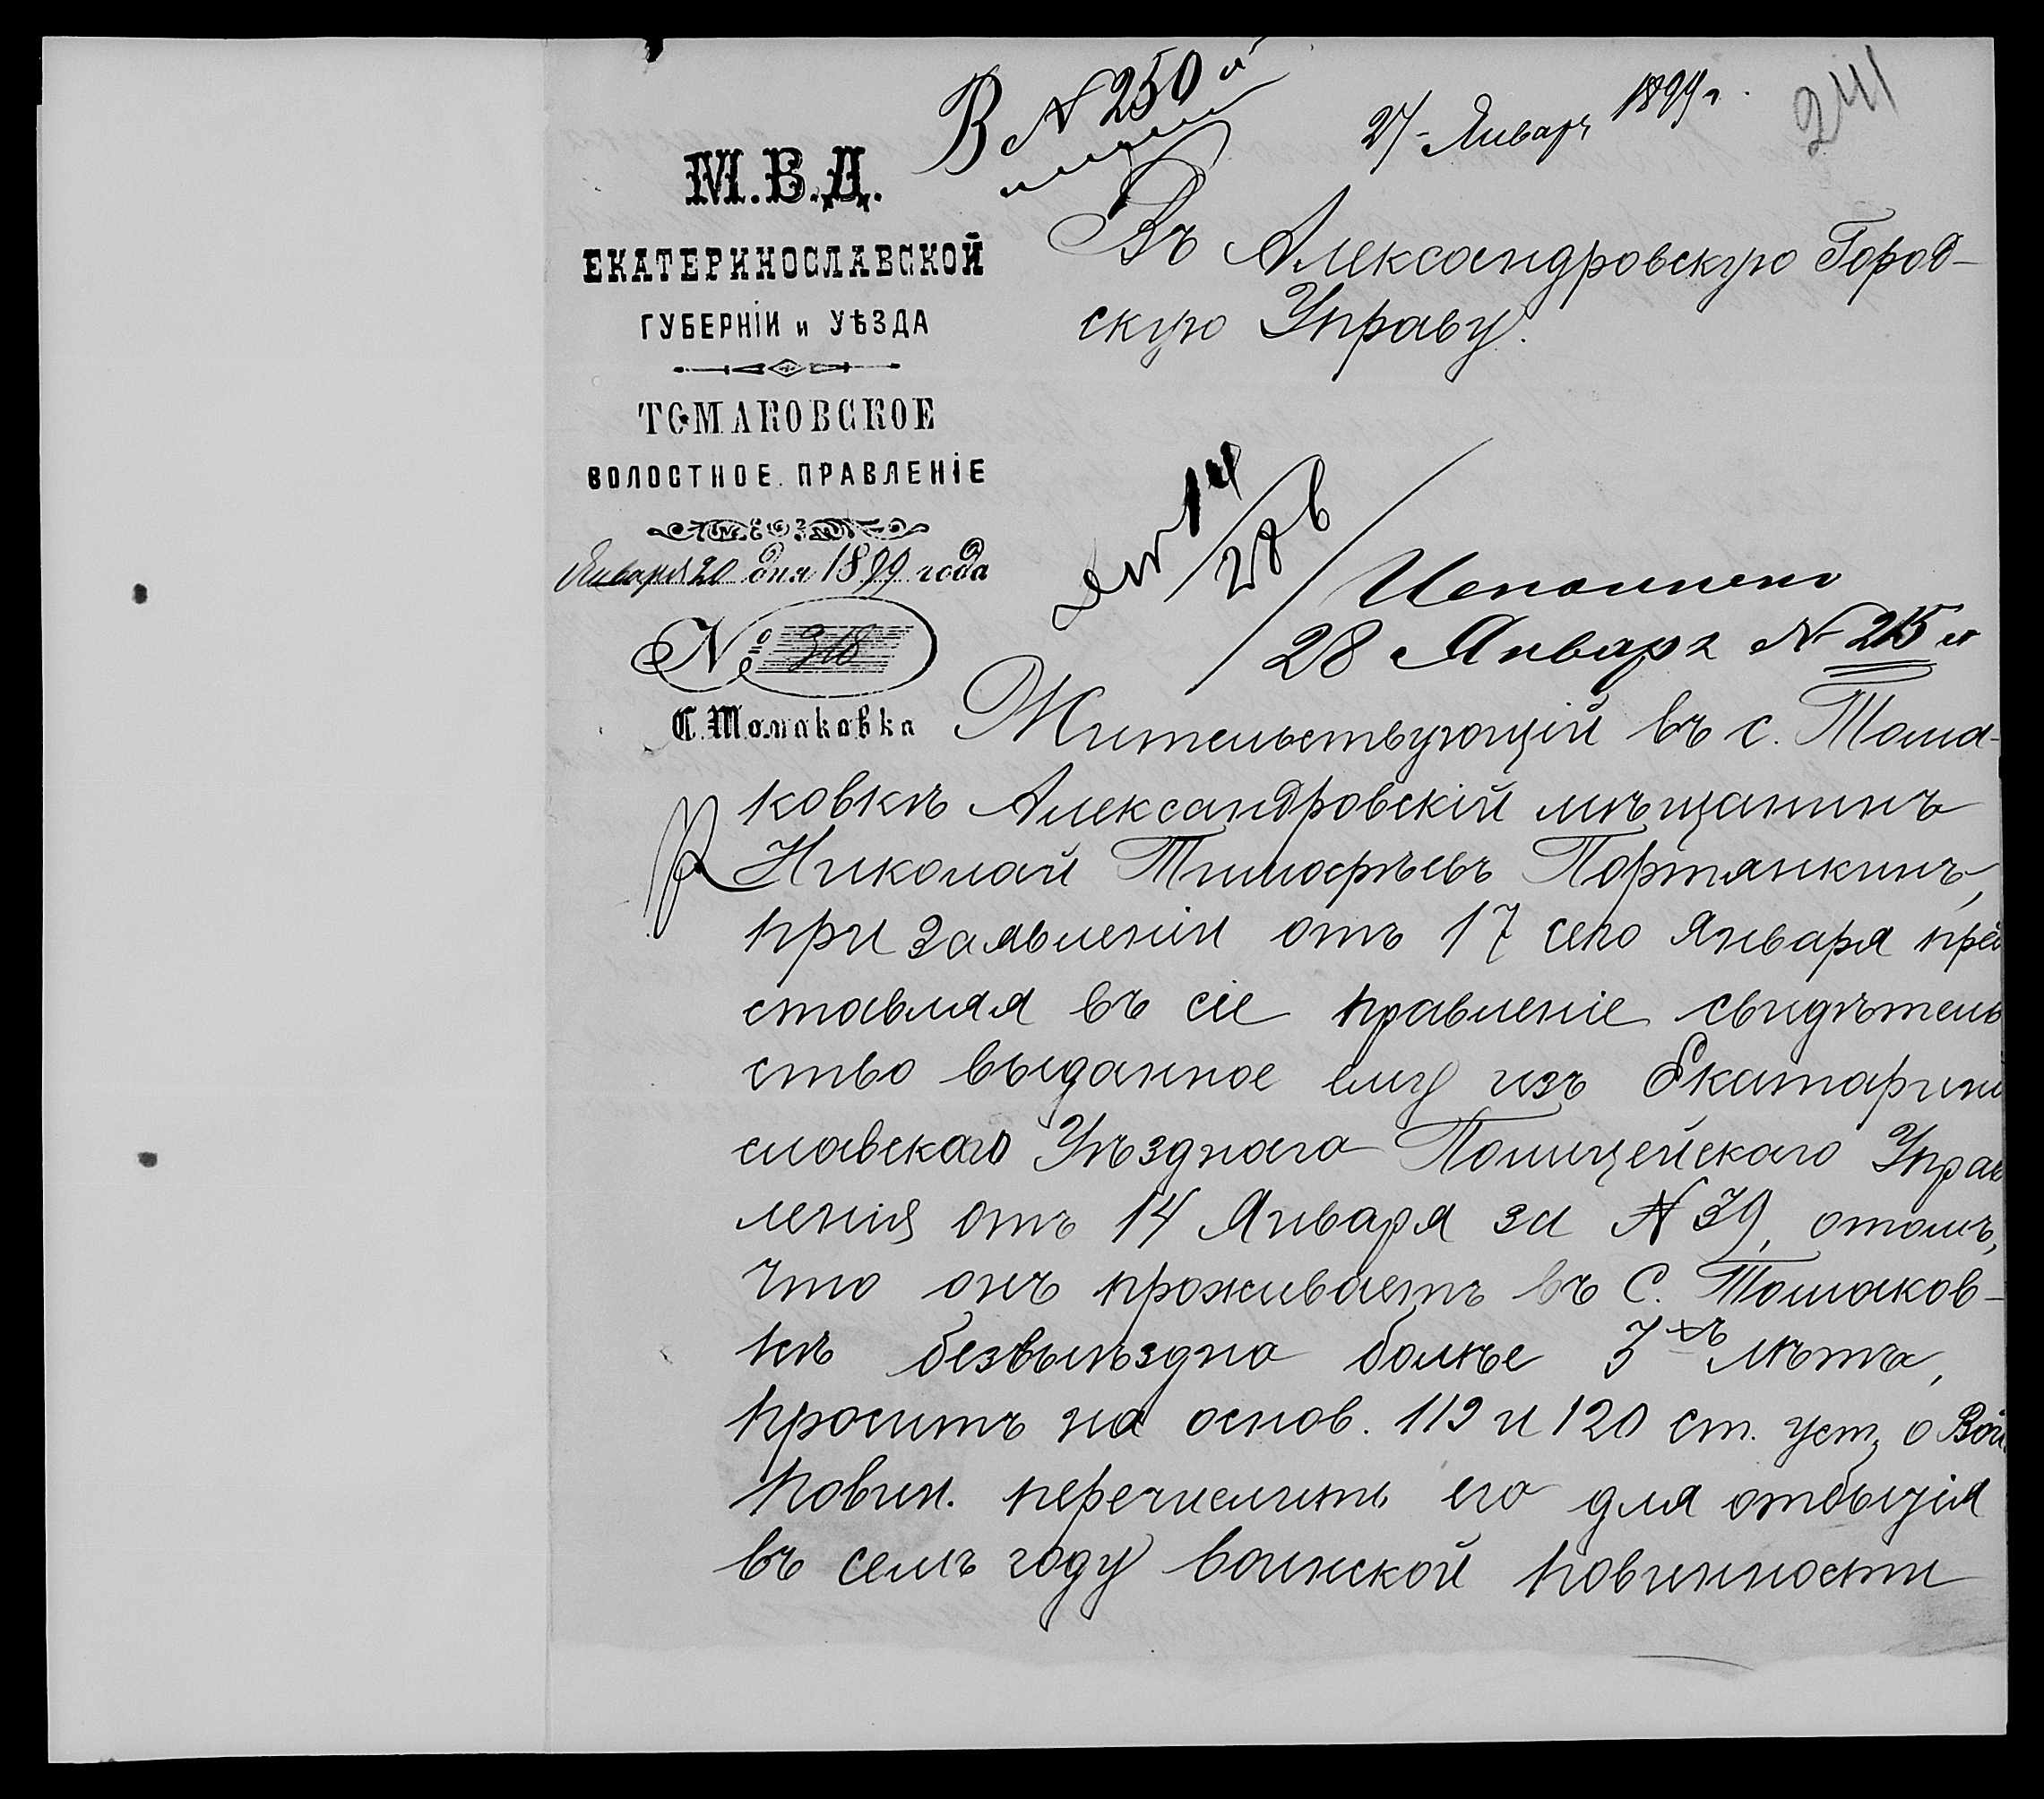 В № 250 й
27 Январ 1899 г.
241
М.В.Д.
ЕКАТЕРИНОСЛАВСКОЙ
ГУБЕРНІИ и УѢЗДА
ТОМАКОВСКОЕ
ВОЛОСТНОЕ ПРАВЛЕНІЕ
Января 20 дня 1899 года
№ 318
С. Томаковка
Въ Александровскую Город-
скую Управу.
14
28
Исполнено
28 Января № 215 й
Жительствующій въ с. Тома-
ковкѣ Александровскій мѣщанинъ
Николай Тимофѣевъ Портянкинъ,
при заявленіи отъ 17 сего Января пред
ставляя въ сіе правленіе свидѣтель
ство выданное ему изъ Екатарино
славскаго Уѣзднаго Полицейскаго Управ
ленія отъ 14 Января за № 39, отомъ,
что онъ проживаетъ въ С. Томаков-
кѣ безвыѣздно болѣе 3хъ лѣтъ,
проситъ на основ. 119 и 120 ст. уст. о Воин
повин. перечислить его для отбыція
въ семъ году воинской повинности